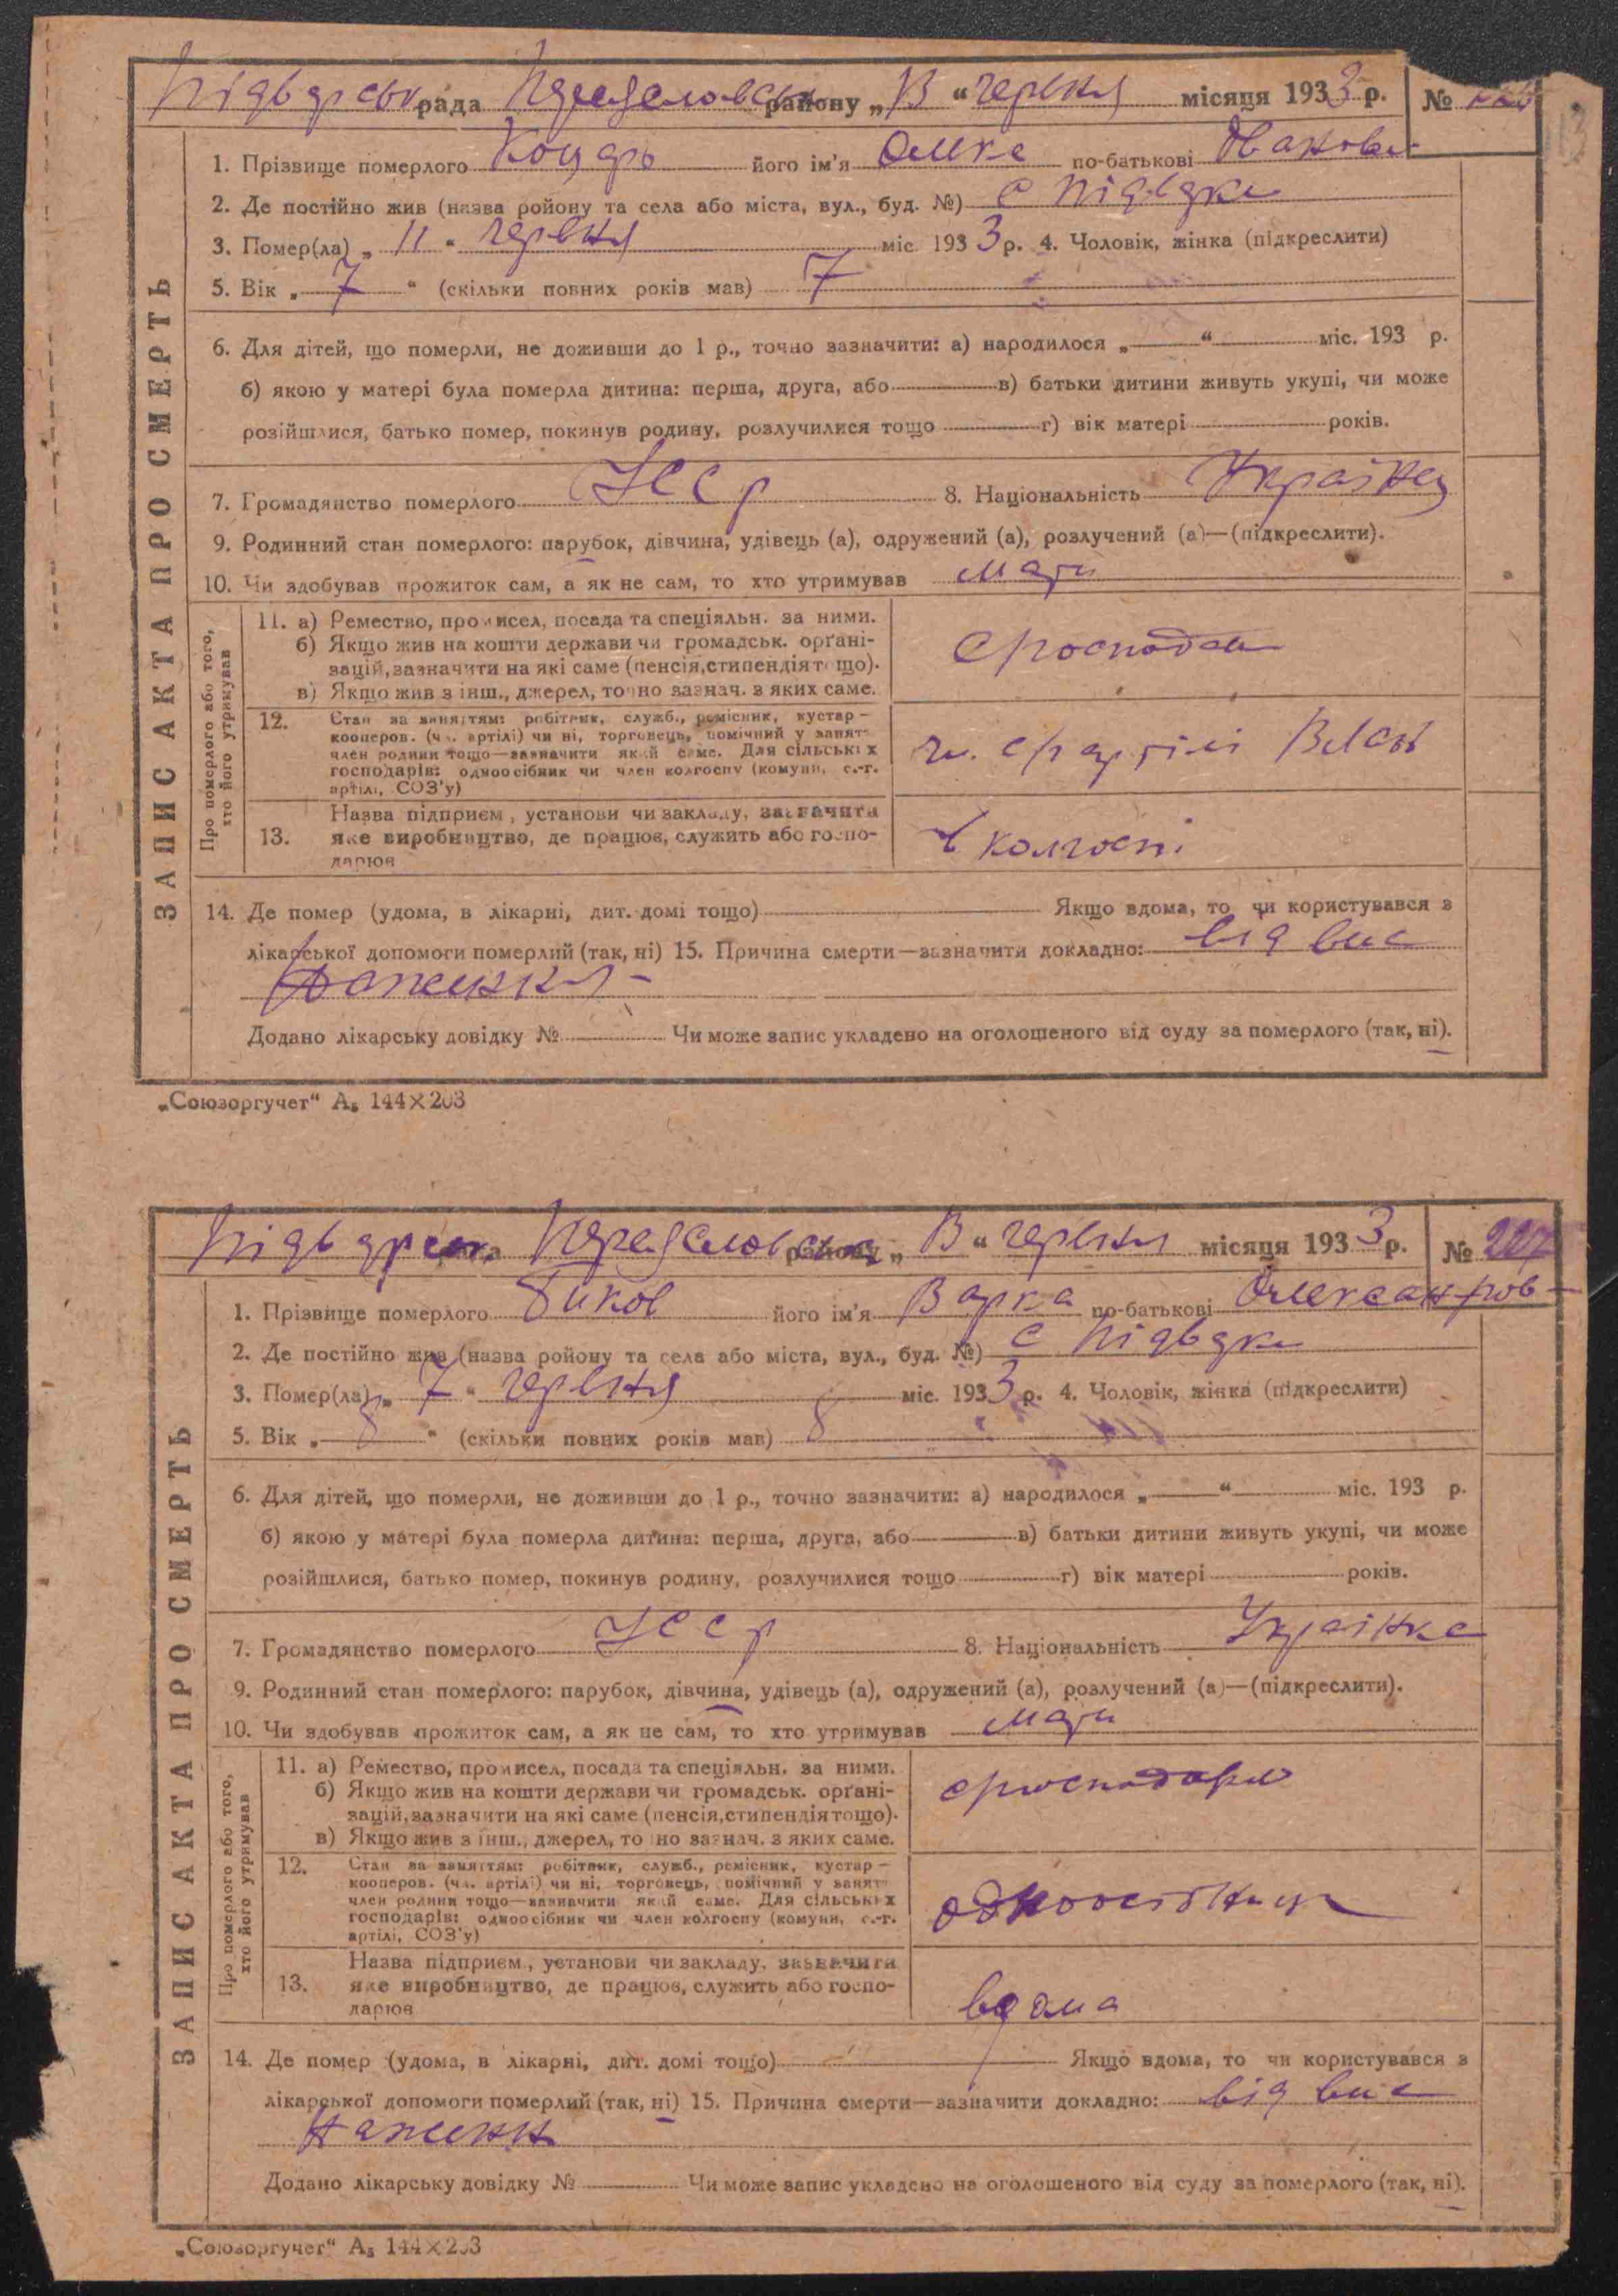 Підварська рада Переяславськ району „13“ червня місяця 1933 р. №
113
ЗАПИС АКТА ПРО СМЕРТЬ
1. Прізвище померлого Коцарь його ім'я по-батькові Іванови
2. Де постійно жив (назва ройону та села або міста, вул., буд. №) с Підварки
3. Помер(ла) „11“ червня міс. 1933 р. 4. Чоловік, жінка (підкреслити)
5. Вік „7“ (скільки повних років мав) 7
6. Для дітей, що померли, не доживши до 1 р., точно зазначити: а) народилося „ “ міс. 193 р.
б) якою у матері була померла дитина: перша, друга, або в) батьки дитини живуть укупі, чи може
розійшлися, батько помер, покинув родину, розлучилися тощо г) вік матері років.
7. Громадянство померлого УССР 8. Національність Українец
9. Родинний стан померлого: парубок, дівчина, удівець (а), одружений (а), розлучений (а)—(підкреслити).
10. Чи здобував прожиток сам, а як не сам, то хто утримував мати
Про померлого або того,
хто його утримував
11. а) Ремество, промисел, посада та спеціяльн. за ними.
б) Якщо жив на кошти держави чи громадськ. орґані-
зацій, зазначити на які саме (пенсія, стипендія тощо).
в) Якщо жив з інш., джерел, точно зазнач. з яких саме.
12. Стан за заняттям: робітник, служб., ремісник, кустар—
кооперов. (чл. артілі) чи ні, торговець, помічний у занятт.
член родини тощо—зазначити який саме. Для сільських
господарів: одноосібник чи член колгоспу (комуни, с.-г.
артілі, СОЗ'у)
чл. с/г артілі
13. Назва підприєм., установи чи закладу, зазначити
яке виробництво, де працює, служить або госпо-
дарює
в колгоспі
14. Де помер (удома, в лікарні, дит. домі тощо) Якщо вдома, то чи користувався з
лікарської допомоги померлий (так, ні) 15. Причина смерти—зазначити докладно: від вис
наження
Додано лікарську довідку № Чи може запис укладено на оголошеного від суду за померлого (так, ні).
„Союзоргучет“ А₅ 144×203
Підварськ рада Переяславськ району „13“ червня місяця 1933 р. № 227
ЗАПИС АКТА ПРО СМЕРТЬ
1. Прізвище померлого Биков його ім'я Варка по-батькові Олександров
2. Де постійно жив (назва ройону та села або міста, вул., буд. №) с Підварки
3. Помер(ла) „7“ червня міс. 1933 р. 4. Чоловік, жінка (підкреслити)
5. Вік „8“ (скільки повних років мав) 8
6. Для дітей, що померли, не доживши до 1 р., точно зазначити: а) народилося „ “ міс. 193 р.
б) якою у матері була померла дитина: перша, друга, або в) батьки дитини живуть укупі, чи може
розійшлися, батько помер, покинув родину, розлучилися тощо г) вік матері років.
7. Громадянство померлого УССР 8. Національність Українка
9. Родинний стан померлого: парубок, дівчина, удівець (а), одружений (а), розлучений (а)—(підкреслити).
10. Чи здобував прожиток сам, а як не сам, то хто утримував мати
Про померлого або того,
хто його утримував
11. а) Ремество, промисел, посада та спеціяльн. за ними.
б) Якщо жив на кошти держави чи громадськ. орґані-
зацій, зазначити на які саме (пенсія, стипендія тощо).
в) Якщо жив з інш., джерел, точно зазнач. з яких саме.
12. Стан за заняттям: робітник, служб., ремісник, кустар—
кооперов. (чл. артілі) чи ні, торговець, помічний у занятт.
член родини тощо—зазначити який саме. Для сільських
господарів: одноосібник чи член колгоспу (комуни, с.-г.
артілі, СОЗ'у)
13. Назва підприєм., установи чи закладу, зазначити
яке виробництво, де працює, служить або госпо-
дарює
вдома
14. Де помер (удома, в лікарні, дит. домі тощо) Якщо вдома, то чи користувався з
лікарської допомоги померлий (так, ні) 15. Причина смерти—зазначити докладно: від вис
наження
Додано лікарську довідку № Чи може запис укладено на оголошеного від суду за померлого (так, ні).
„Союзоргучет“ А₅ 144×203